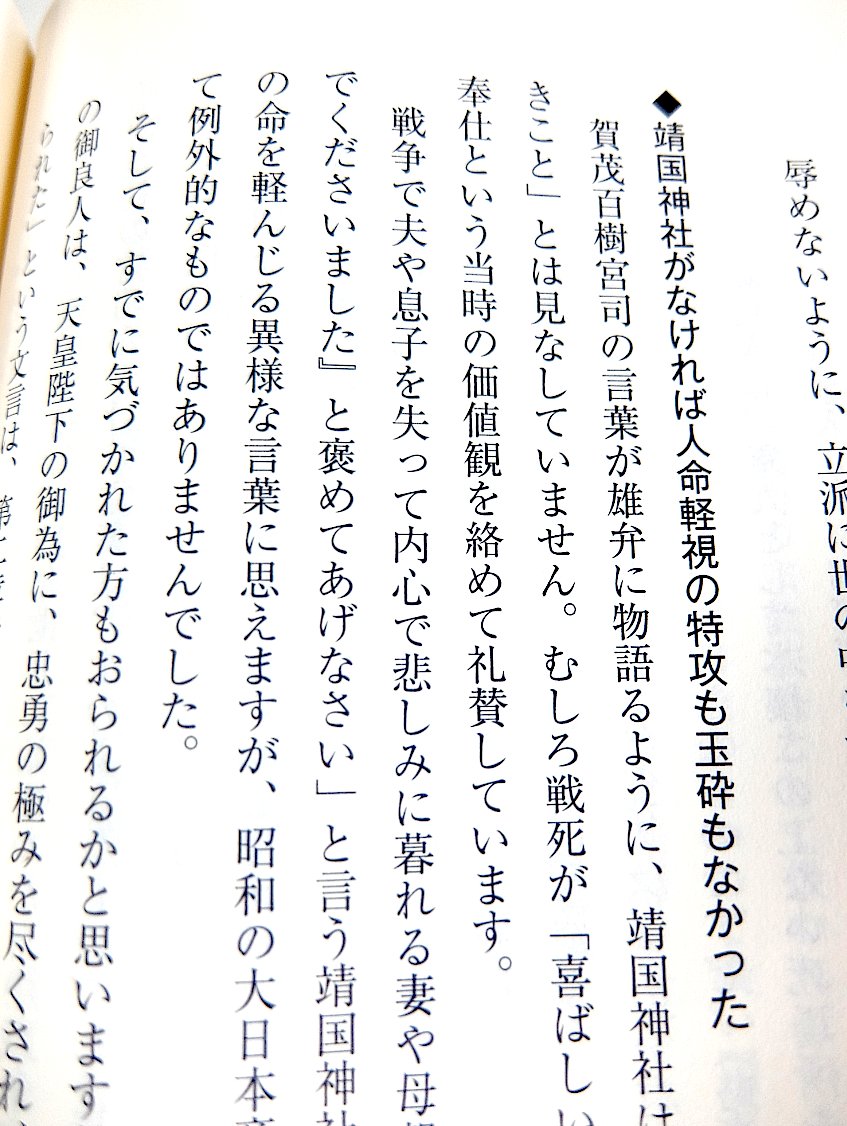 辱めないように、立派に世の中
◆靖国神社がなければ人命軽視の特攻も玉砕もなかった
賀茂百樹宮司の言葉が雄弁に物語るように、靖国神社は
きこと」とは見なしていません。むしろ戦死が「喜ばしい
奉仕という当時の価値観を絡めて礼賛しています。
戦争で夫や息子を失って内心で悲しみに暮れる妻や母親
でくださいました』と褒めてあげなさい」と言う靖国神社
の命を軽んじる異様な言葉に思えますが、昭和の大日本帝
て例外的なものではありませんでした。
そして、すでに気づかれた方もおられるかと思います
の御良人は、天皇陛下の御為に、忠勇の極みを尽くされ
られた」という文言は、第二